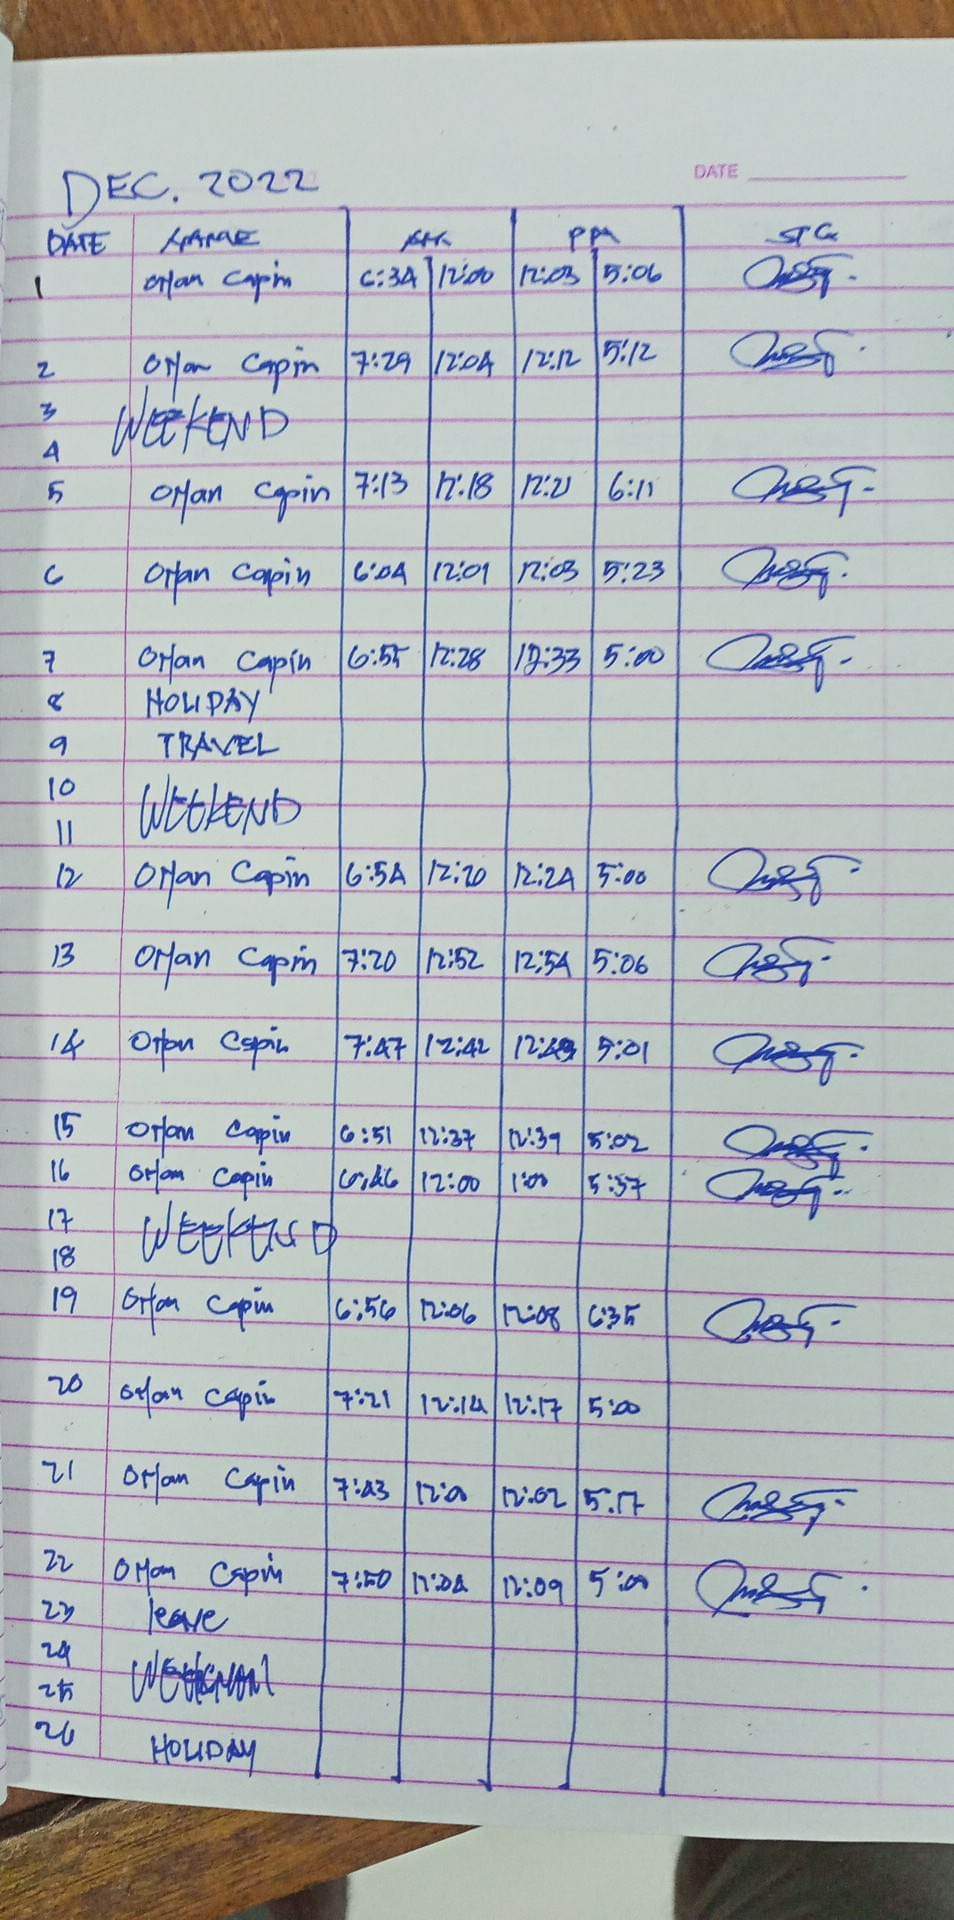 DEC. 2022
DATE
DATE NAME AM PM SIG
1 Orlan Capin 6:34 12:00 12:03 5:06
2 Orlan Capin 7:29 12:04 12:12 5:12
3
WEEKEND
4
5 Orlan Capin 7:13 12:18 12:21 6:11
6 Orlan Capin 6:04 12:01 12:03 5:23
7 Orlan Capin 6:55 12:28 12:33 5:00
8 HOLIDAY
9 TRAVEL
10
WEEKEND
11
12 Orlan Capin 6:54 12:20 12:24 5:00
13 Orlan Capin 7:20 12:52 12:54 5:06
14 Orlan Capin 7:47 12:42 5:01
15 Orlan Capin 6:51 12:37 12:39 5:02
16 Orlan Capin 6:46 12:00 1:00 5:37
17
WEEKEND
18
19 Orlan Capin 6:56 12:06 12:08 6:35
20 Orlan Capin 7:21 12:14 12:17 5:00
21 Orlan Capin 7:43 12:02 5:17
22 Orlan Capin 7:50 12:04 12:09 5:00
23 leave
24
25
26 HOLIDAY